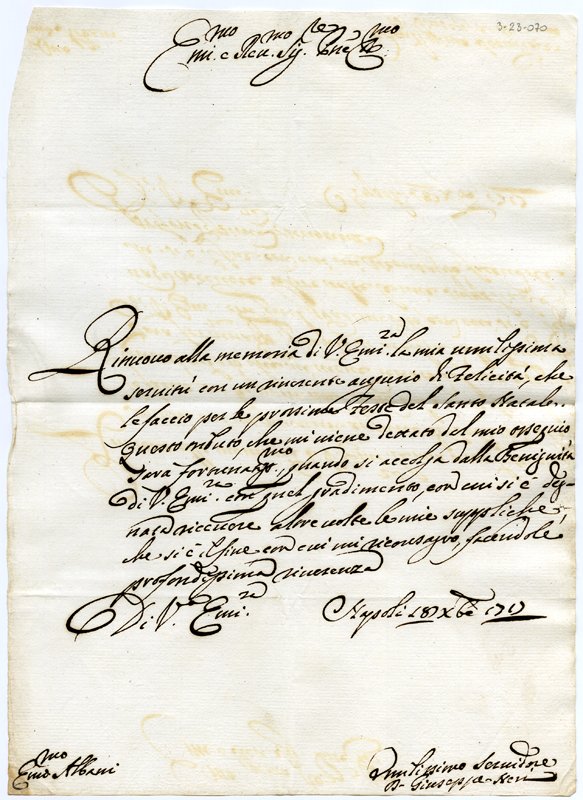 3-23-070
Emi.mo e Reu.mo Sig.re Pne
Rinuouo alla memoria di V. Emi.za la mia umilissima
seruitù con un riuerente augurio di Felicità, che
le faccio per le prossime Feste del Santo Natale.
Questo tributo, che mi uiene dettato del mio ossequio
sara fortunatis.mo, quando si accolga dalla Benignità
di V. Emi.za con quel gradimento, con cui si è deg-
nata riceuere altre uolte le mie suppliche,
che si è il fine con cui mi riconsagro, facendole
profondissima riuerenza
Di V. Emi.za Napoli 18 Xbre 1717
Em.mo Albani
Umilissimo Seruidore
D. Giuseppe